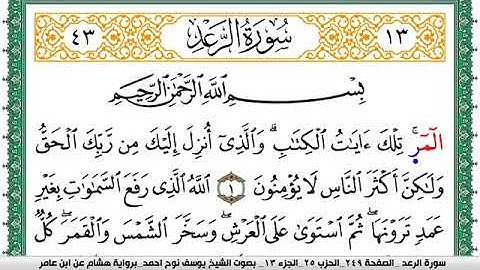 ١٣ سُورَةُ الرَّعْدِ ٤٣
بِسْمِ اللَّهِ الرَّحْمَٰنِ الرَّحِيمِ
الٓمٓرۚ تِلْكَ ءَايَٰتُ الْكِتَٰبِۗ وَالَّذِىٓ أُنزِلَ إِلَيْكَ مِن رَّبِّكَ الْحَقُّ
وَلَٰكِنَّ أَكْثَرَ النَّاسِ لَا يُؤْمِنُونَ ١ اللَّهُ الَّذِى رَفَعَ السَّمَٰوَٰتِ بِغَيْرِ
عَمَدٍ تَرَوْنَهَاۖ ثُمَّ اسْتَوَىٰ عَلَى الْعَرْشِۖ وَسَخَّرَ الشَّمْسَ وَالْقَمَرَۖ كُلٌّ
سورة الرعد _الصفحة ٢٤٩_ الحزب ٢٥_ الجزء ١٣_ بصوت الشيخ يوسف نوح احمد_ برواية هشام عن ابن عامر